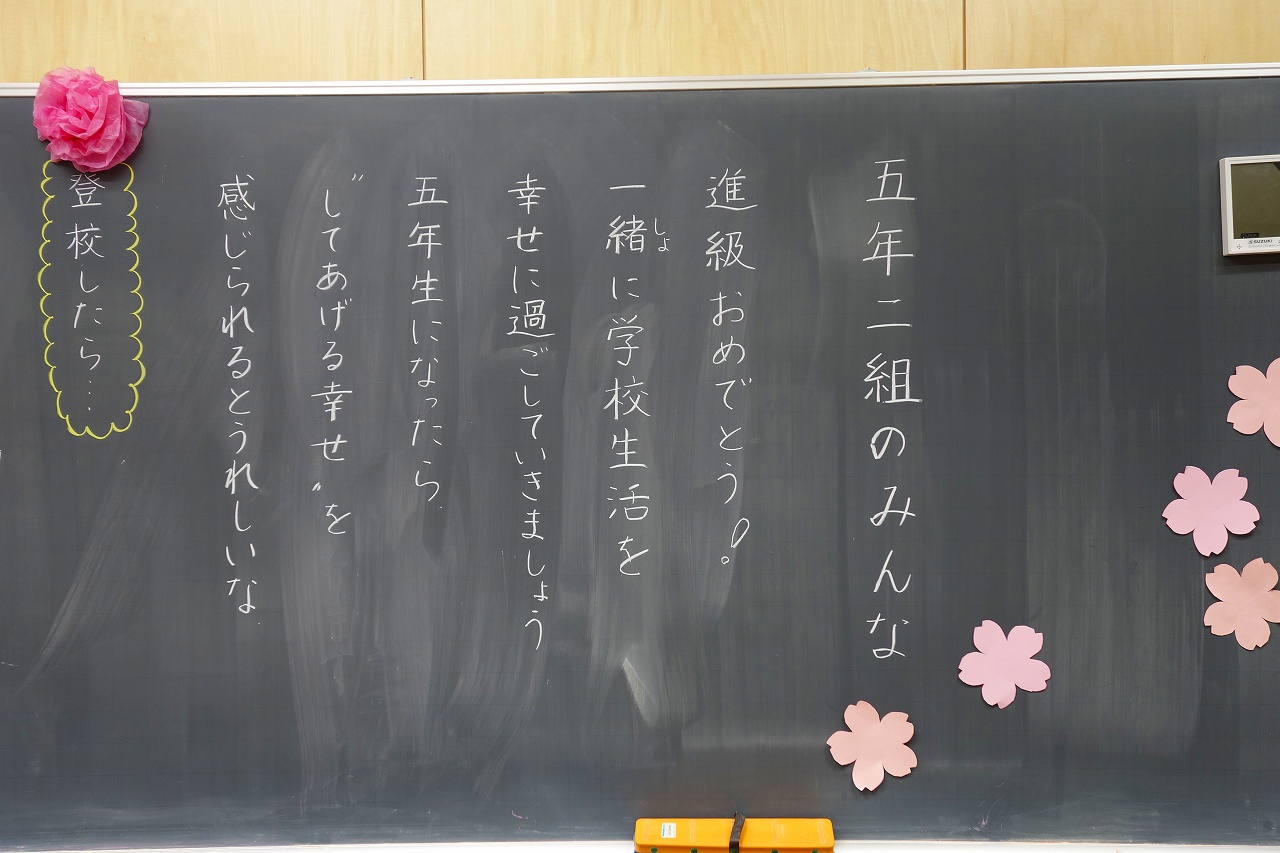 五年二組のみんな
進級おめでとう!
一緒に学校生活を
しょ
幸せに過ごしていきましょう
五年生になったら
"してあげる幸せ"を
感じられるとうれしいな
登校したら…
SUZUKI